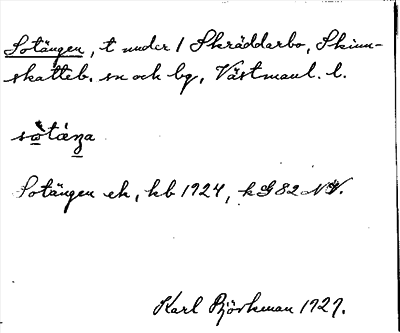 Sotängen, t under 1 Skräddarbo, Skinn-
skatteb. sn och bg, Västmanl. l.
Sotängen ek, kb 1924, k G 82 NV.
Karl Björkman 1927.